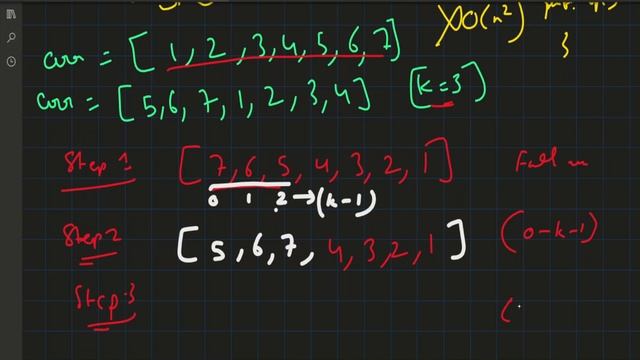 O(n²)
arr = [1, 2, 3, 4, 5, 6, 7]
}
arr = [5, 6, 7, 1, 2, 3, 4] [k = 3)
Step 1 [7, 6, 5, 4, 3, 2, 1]
0 1 2 → (k - 1)
Step 2 [5, 6, 7, 4, 3, 2, 1] (0 - k - 1)
Step 3 (